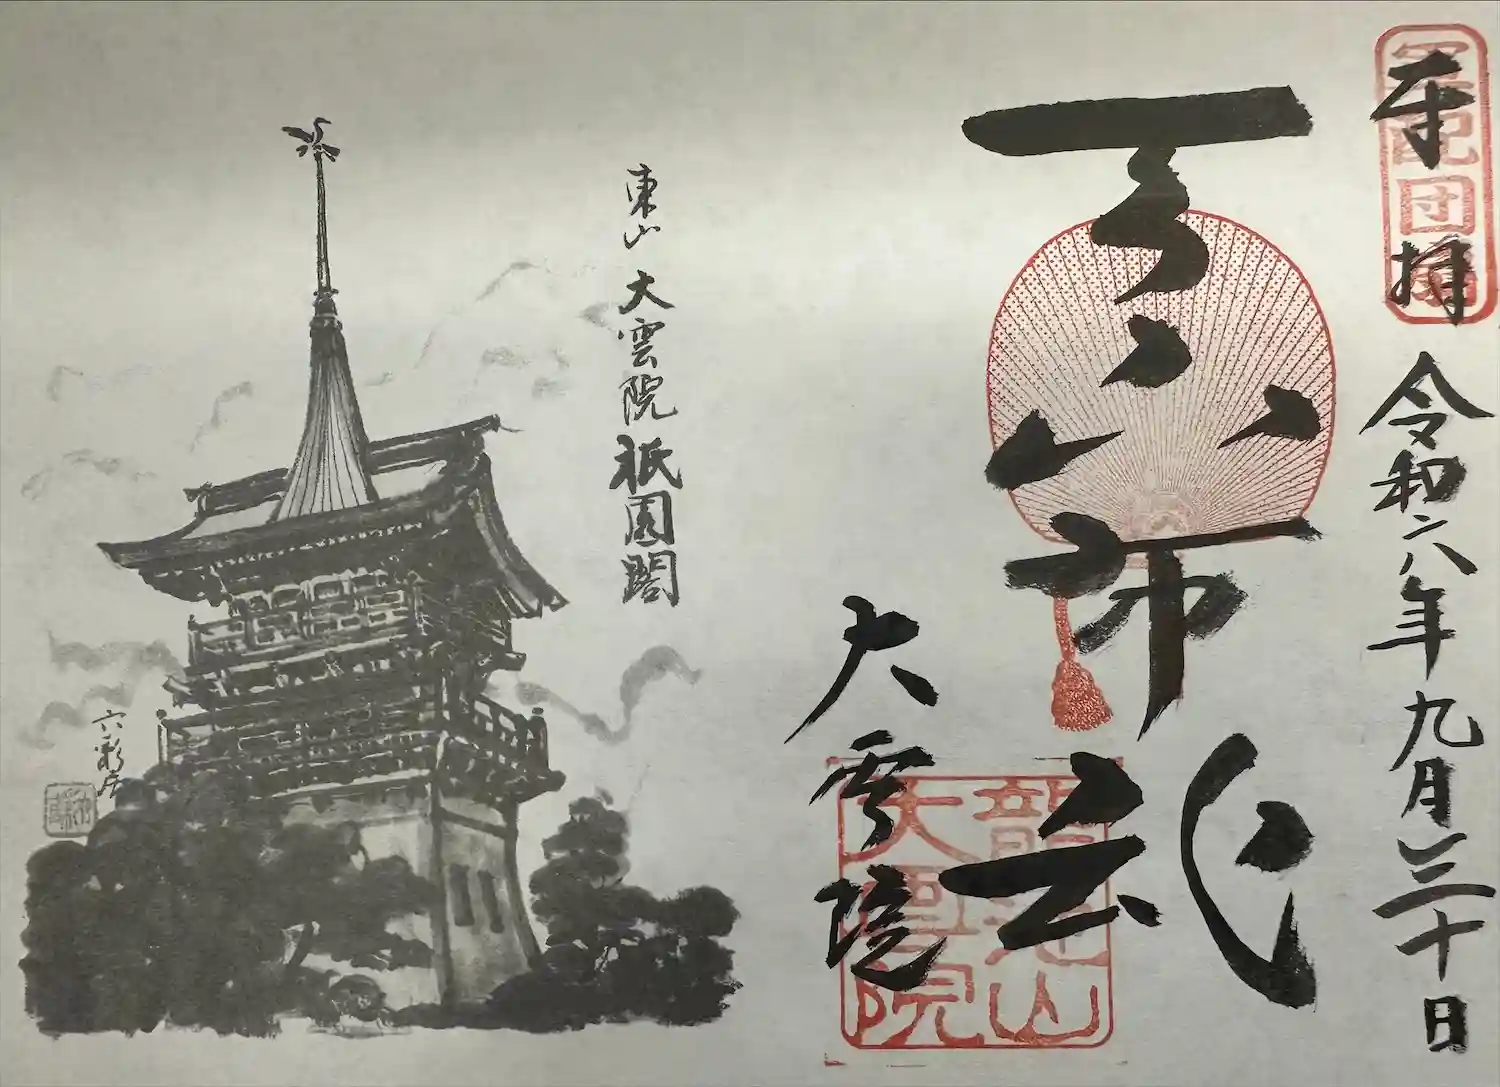 奉拝
軍配団扇
令和六年九月三十日
天下布武
大雲院
龍池山
大雲院
東山 大雲院 祇園閣